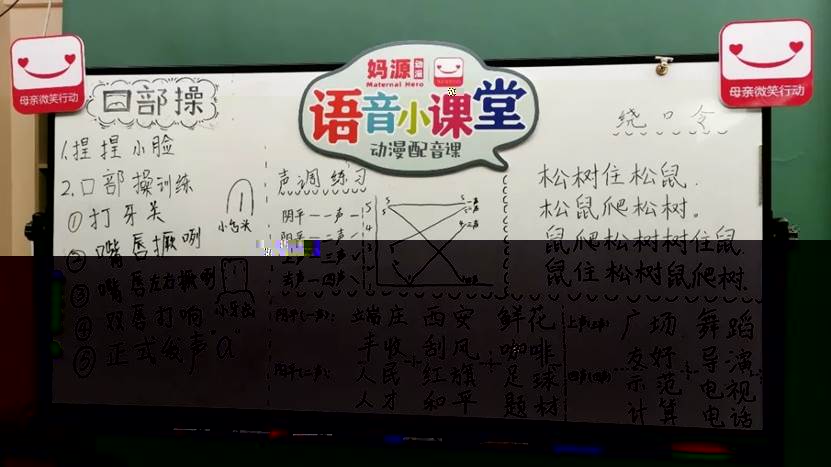 母亲微笑行动
妈源动漫
Maternal Hero
语音小课堂
动漫配音课
母亲微笑行动
口部操
1.捏捏小脸
2.口部操训练
①打牙关
②嘴唇撅咧
③嘴唇左右撅咧
④双唇打响
⑤正式发声"a"
声调练习
阴平——一声
阳平——二声
去声——四声
阴平(一声):
立端庄
西安
鲜花
丰收
刮风
咖啡
阳平(二声):
人民
红旗
足球
人才
和平
题材
绕口令
松树住松鼠.
松鼠爬松树。
鼠爬松树树住鼠.
鼠住松树鼠爬树.
上声(三声)
广场
舞蹈
友好
导演
去声(四声)
示范
电视
计算
电话